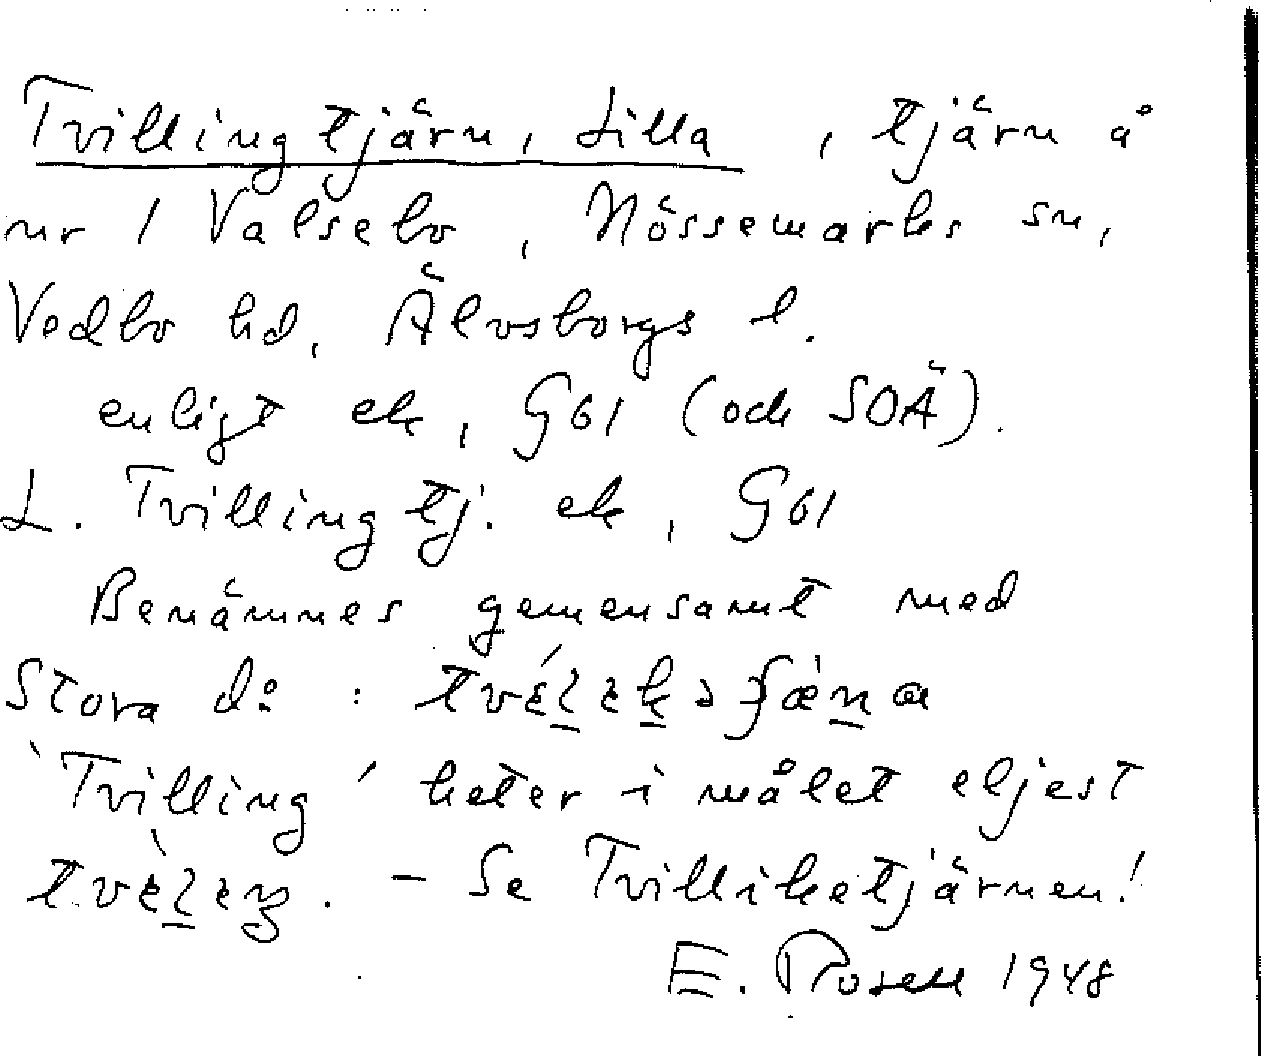 Tvillingtjärn, Lilla , tjärn å
nr 1 Valsebo , Nössemarks sn,
Vedbo hd, Älvsborgs l.
enligt ek, G61 (och SOÄ).
L. Tvillingtj. ek, G61
Benämnes gemensamt med
Stora d:o :
'Tvilling' heter i målet eljest
. – Se Tvilliketjärnen!
E. Rosell 1948